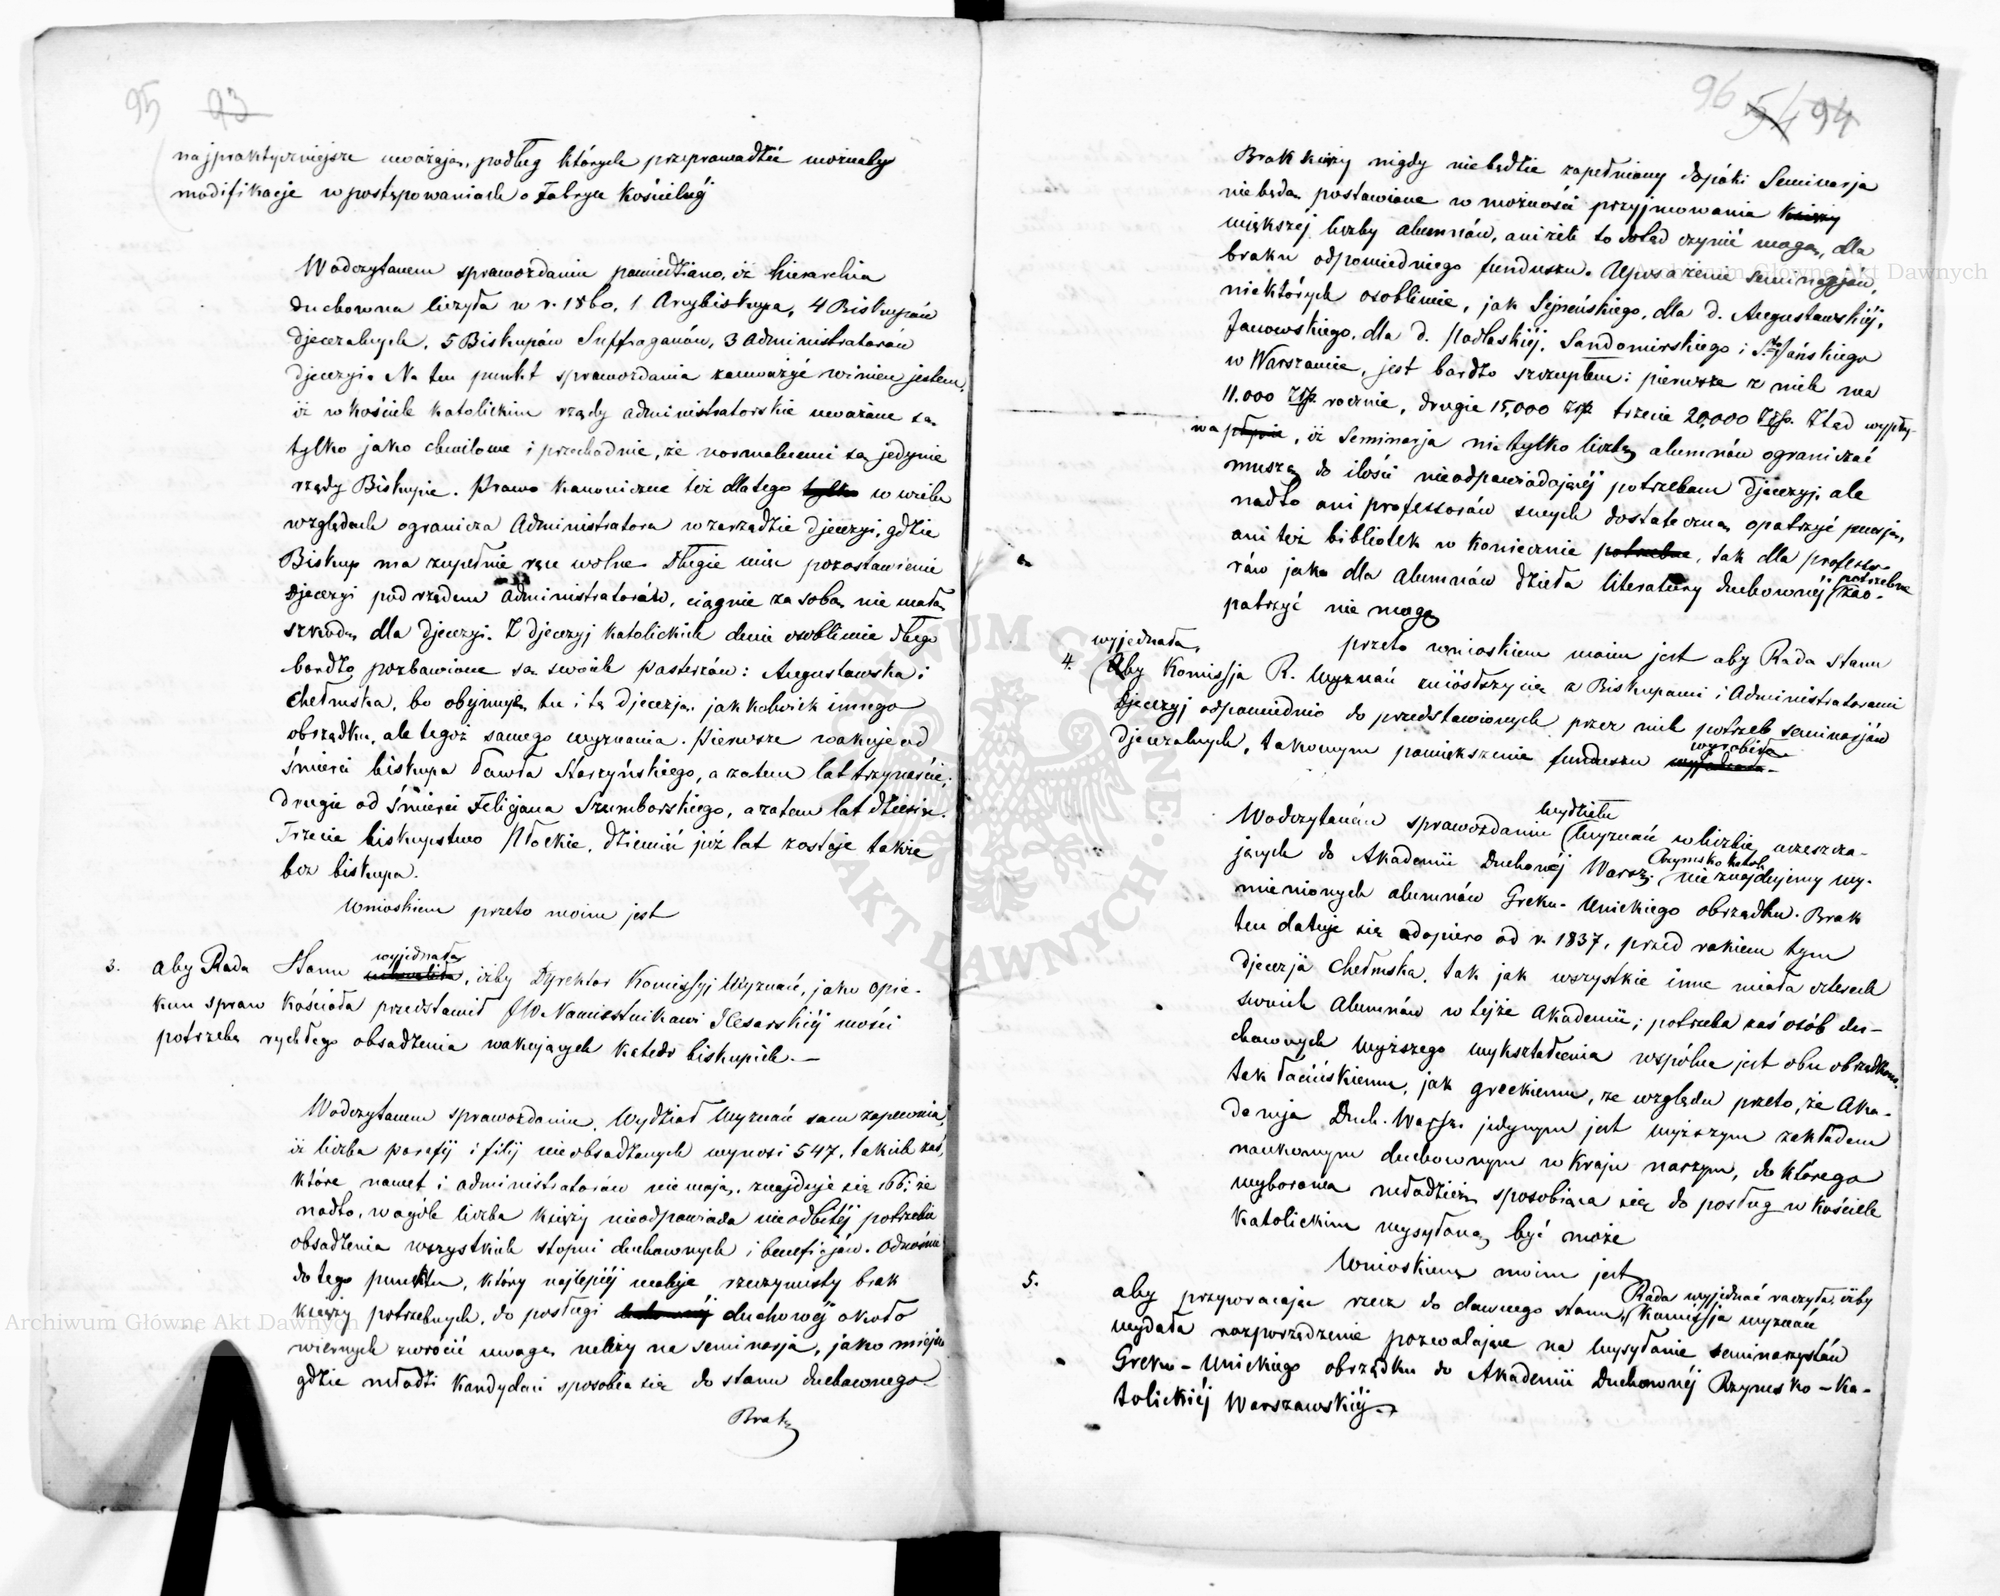 95 93
najpraktyczniejsze uważają, podług których przeprowadzić możnaby
modifikacje w postępowaniach o Fabryce Kościelnéj
W odczytanem sprawozdaniu powiedziano, iż hierarchia
duchowna liczyła w r. 1860, 1 Arcybiskupa, 4 Biskupów
djecezalnych, 5 Biskupów Suffraganów, 3 Administratorów
djecezji. Na ten punkt sprawozdania zauważyć winien jestem,
iż w kościele katolickim rządy administratorskie uważane są
tylko jako chwilowe i przechodnie, że normalnemi są jedynie
rządy Biskupie. Prawo kanoniczne też dlatego tylko w wielu
względach ogranicza Administratora w zarządzie djecezji, gdzie
Biskup ma zupełnie ręce wolne. Długie więc pozostawienie
Djecezji pod rządem Administratorów, ciągnie za sobą nie małą
szkodę dla djecezji. Z djecezyj katolickich dwie osobliwie długo
bardzo pozbawione są swoich pasterzów: Augustowska i
Chełmska, bo obejmuję tu i tę djecezją, jakkolwiek innego
obrządku, ale tegoż samego wyznania. Pierwsze wakuje od
śmierci biskupa Pawła Straszyńskiego, a zatem lat trzynaście,
drugie od śmierci Felicjana Szumborskiego, a zatem lat dziesięć.
Trzecie biskupstwo Płockie, dziewięć już lat zostaje także
bez biskupa.
Wnioskiem przeto moim jest
wyjednała
3. aby Rada Stanu uchwaliła, iżby Dyrektor Komissyj Wyznań, jako opie-
kun spraw Kościoła przedstawił JW. Namiestnikowi Cesarskiéj mości
potrzebę rychłego obsadzenia wakujących katedr biskupich. —
W odczytanem sprawozdaniu, Wydział Wyznań sam zapewnia,
iż liczba parafij i filij nieobsadzonych wynosi 547, takich zaś,
które nawet i administratorów nie mają, znajduje się 166; że
nadto, w ogóle liczba księży nieodpowiada nieodbitéj potrzebie
obsadzenia wszystkich stopni duchownych i beneficjów. Odnośnie
do tego punktu, który najlepiéj maluje rzeczywisty brak
księży potrzebnych, do posługi duchowéj około
wiernych zwrócić uwagę należy na seminarja, jako miejsce
gdzie młodzi kandydaci sposobią się do stanu duchownego.
Brak
96 54 94
Brak księży nigdy niebędzie zapełniony dopóki Seminarja
niebędą postawione w możności przyjmowania księży
większéj liczby alumnów, aniżeli to dotąd czynić mogą, dla
braku odpowiedniego funduszu. Uposażenie Seminarjów,
niektórych osobliwie, jak Sejneńskiego, dla d. Augustowskiéj,
Janowskiego, dla d. Podlaskiéj, Sandomirskiego i S-to Jańskiego
w Warszawie, jest bardzo szczupłem: pierwsze z nich ma
11.000 złp. rocznie, drugie 15,000 złp. trzecie 20,000 złp. Ztąd wypły-
wa , iż Seminarja nietylko liczbę alumnów ograniczać
muszą do ilości nieodpowiadającéj potrzebom djecezyj, ale
nadto ani professorów swych dostateczną opatrzyć pensją,
ani też bibliotek w koniecznie potrzebne, tak dla professo-
rów jako dla Alumnów dzieła literatury duchownéj potrzebne zao-
patrzyć nie mogą
przeto wnioskiem moim jest aby Rada Stanu
wyjednała,
4. Aby Komissja R. Wyznań zniósłszy się z Biskupami i Administratorami
Djecezyj odpowiednio do przedstawionych przez nich potrzeb seminarjów
djecezalnych, takowym powiększenie funduszu wyrobiła wyjednała.
W odczytaném sprawozdaniu Wydziału Wyznań w liczbie uczęszcza-
jących do Akademii Duchownéj Warsz. Rzymsko katol. nie znajdujemy wy-
mienionych alumnów Greko-Unickiego obrządku. Brak
ten datuje się dopiero od r. 1837, przed rokiem tym
djecezja Chełmska, tak jak wszystkie inne miała czterech
swoich Alumnów w tejże Akademii; potrzeba zaś osób du-
chownych wyższego wykształcenia wspólna jest obu obrządkom,
tak łacińskiemu, jak greckiemu, ze względu przeto, że Aka-
demja Duch. Warsz. jedynym jest wyższym zakładem
naukowym duchownym w kraju naszym, do którego
wyborowa młodzież sposobiąca się do posług w Kościele
Katolickim wysyłaną być może
Wnioskiem moim jest
5. aby przywracając rzecz do dawnego stanu, Rada wyjednać raczyła, iżby Komissja wyznań
wydała rozporządzenie pozwalające na wysyłanie seminarzystów
Greko-Unickiego obrządku do Akademii Duchownéj Rzymsko-Ka-
tolickiéj Warszawskiéj.
Archiwum Główne Akt Dawnych
Archiwum Główne Akt Dawnych
ARCHIWUM GŁÓWNE AKT DAWNYCH